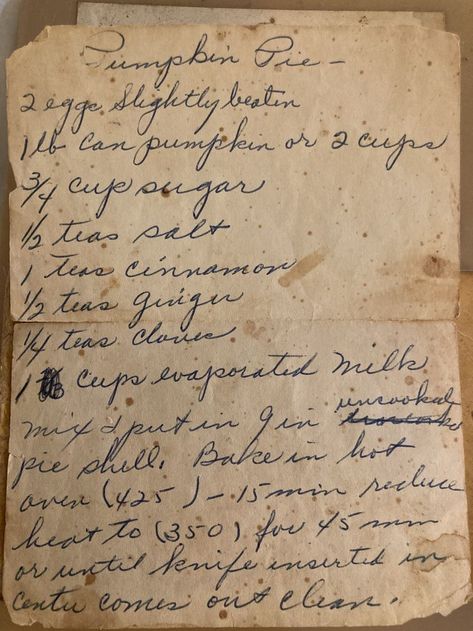 Pumpkin Pie -
2 eggs slightly beaten
1 lb can pumpkin or 2 cups
3/4 cup sugar
1/2 teas salt
1 teas cinnamon
1/2 teas ginger
1/4 teas cloves
1 cups evaporated milk
mix & put in 9 in uncooked
pie shell. Bake in hot
oven (425) - 15 min reduce
heat to (350) for 45 min
or until knife inserted in
center comes out clean.